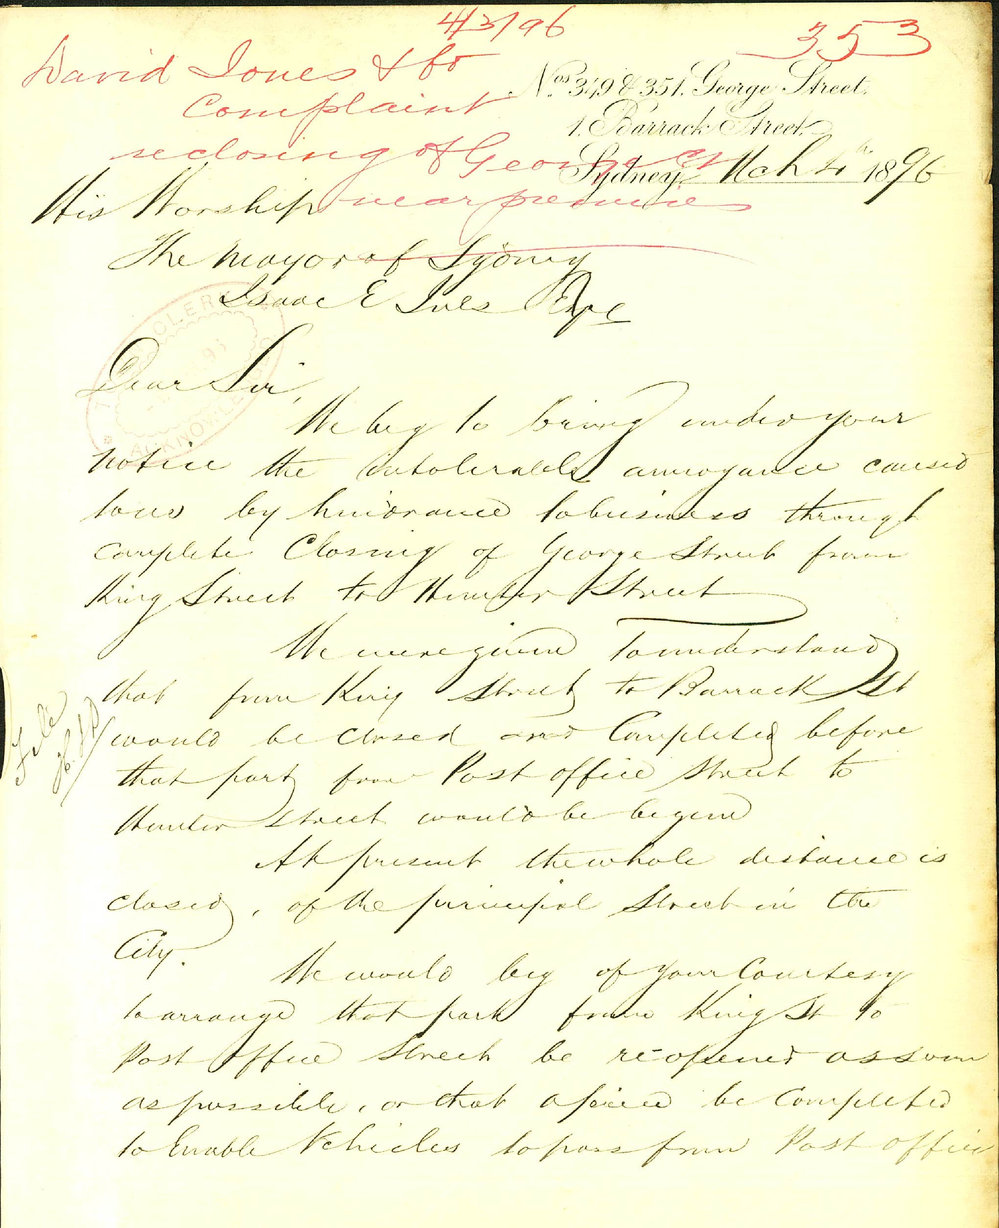 4/3/96
353
David Jones & Co
Complaint
re closing of George St
near premises
Nos. 349 & 351, George Street,
1, Barrack Street,
Sydney, Mch 4th 1896
His Worship
The Mayor of Sydney
Isaac E Ives Esqre
CLERK
ACKNOWLEDGED
Dear Sir,
We beg to bring under your
notice the intolerable annoyance caused
to us by hindrance to business through
complete Closing of George Street from
King Street to Hunter Street
We were given to understand
that from King Street to Barrack St
would be closed and Completed before
that part from Post office Street to
Hunter Street would be begun
File
At present the whole distance is
closed, of the principal Street in the
City.
We would beg of your Courtesy
to arrange that part from King St to
Post Office Street be re-opened as soon
as possible, or that a piece be Completed
to Enable Vehicles to pass from Post Office